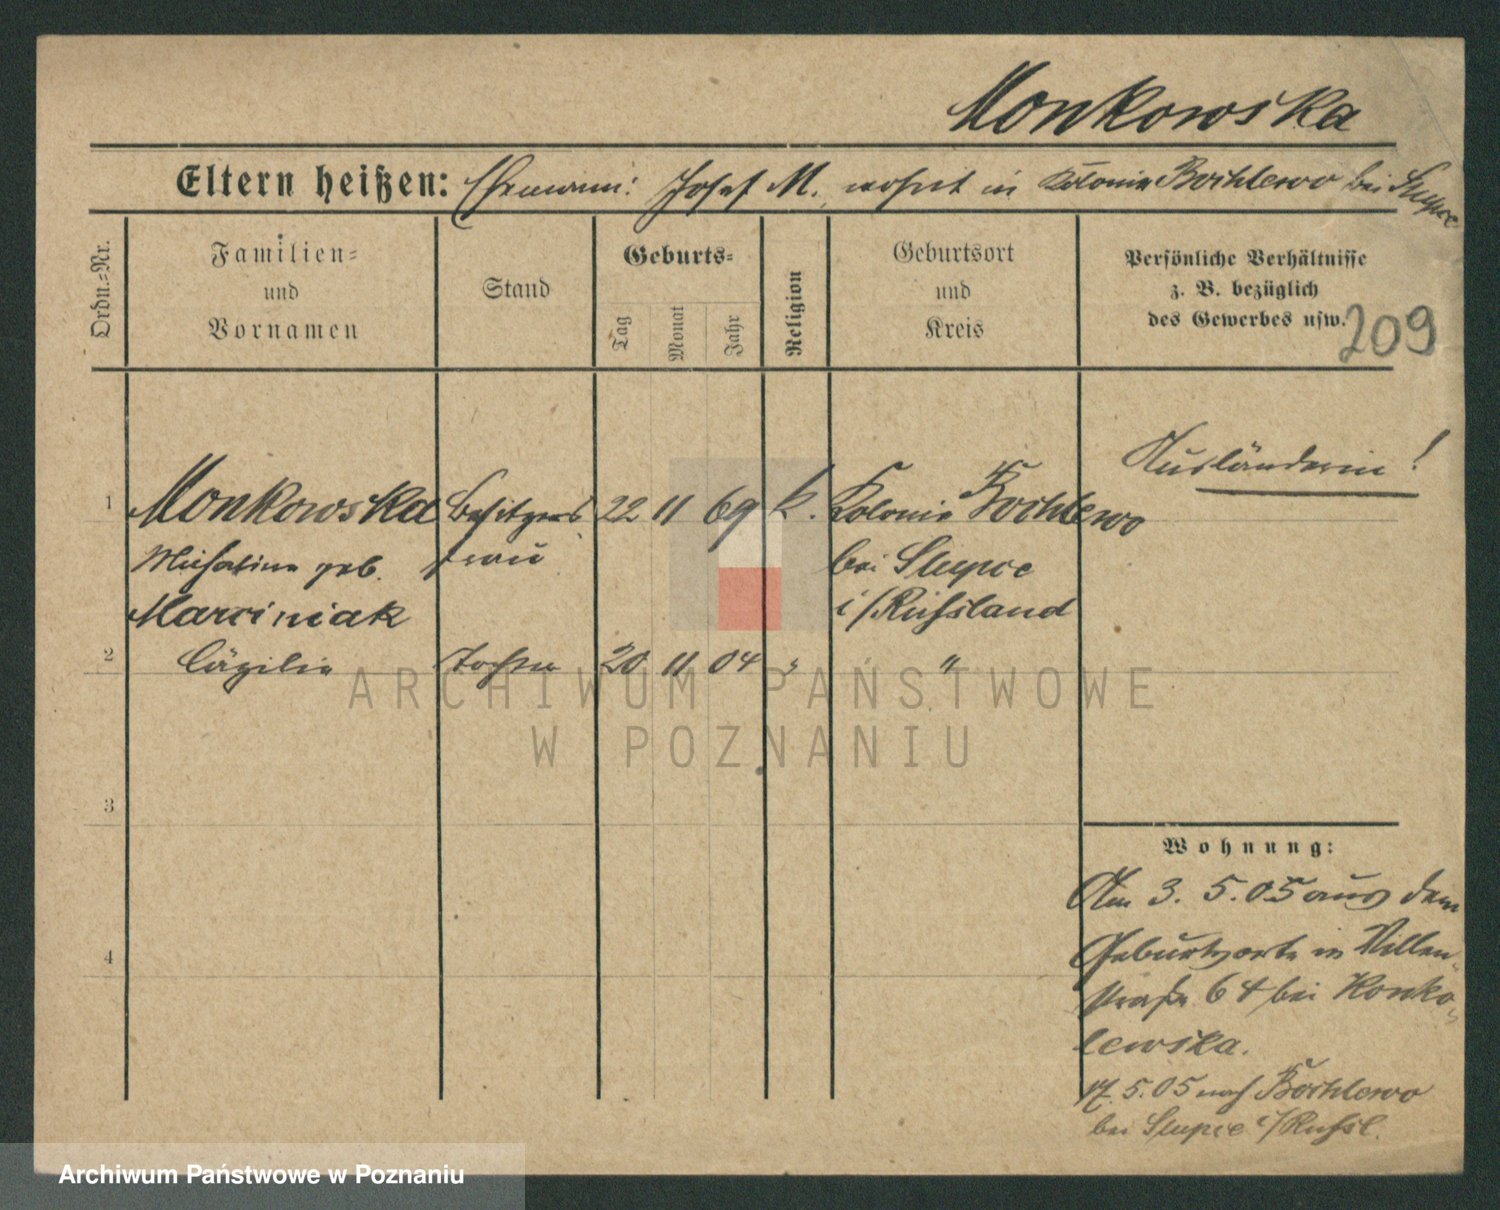 Monkowska
Eltern heißen: Ehemann: Josef M., wohnt in Kolonie Bochlewo bei Slupce
Ordn.-Nr.
Familien-
und
Vornamen
Stand
Geburts-
Tag
Monat
Jahr
Religion
Geburtsort
und
Kreis
Persönliche Verhältnisse
z. B. bezüglich
des Gewerbes usw.
209
Ausländerin!
1 Monkowska Besitzers 22 11 69 k. Kolonie Bochlewo
geb. frau bei Slupce
Marciniak i/Russland
2 Cäzilie Tochter 20 11 04 " "
ARCHIWUM PAŃSTWOWE
W POZNANIU
3
Wohnung:
Am 3. 5. 05 aus dem
Geburtsorte in Villen-
straße 64 bei Konko-
lewska.
4
17. 5. 05 nach Bochlewo
bei Slupce i/Russl.
Archiwum Państwowe w Poznaniu